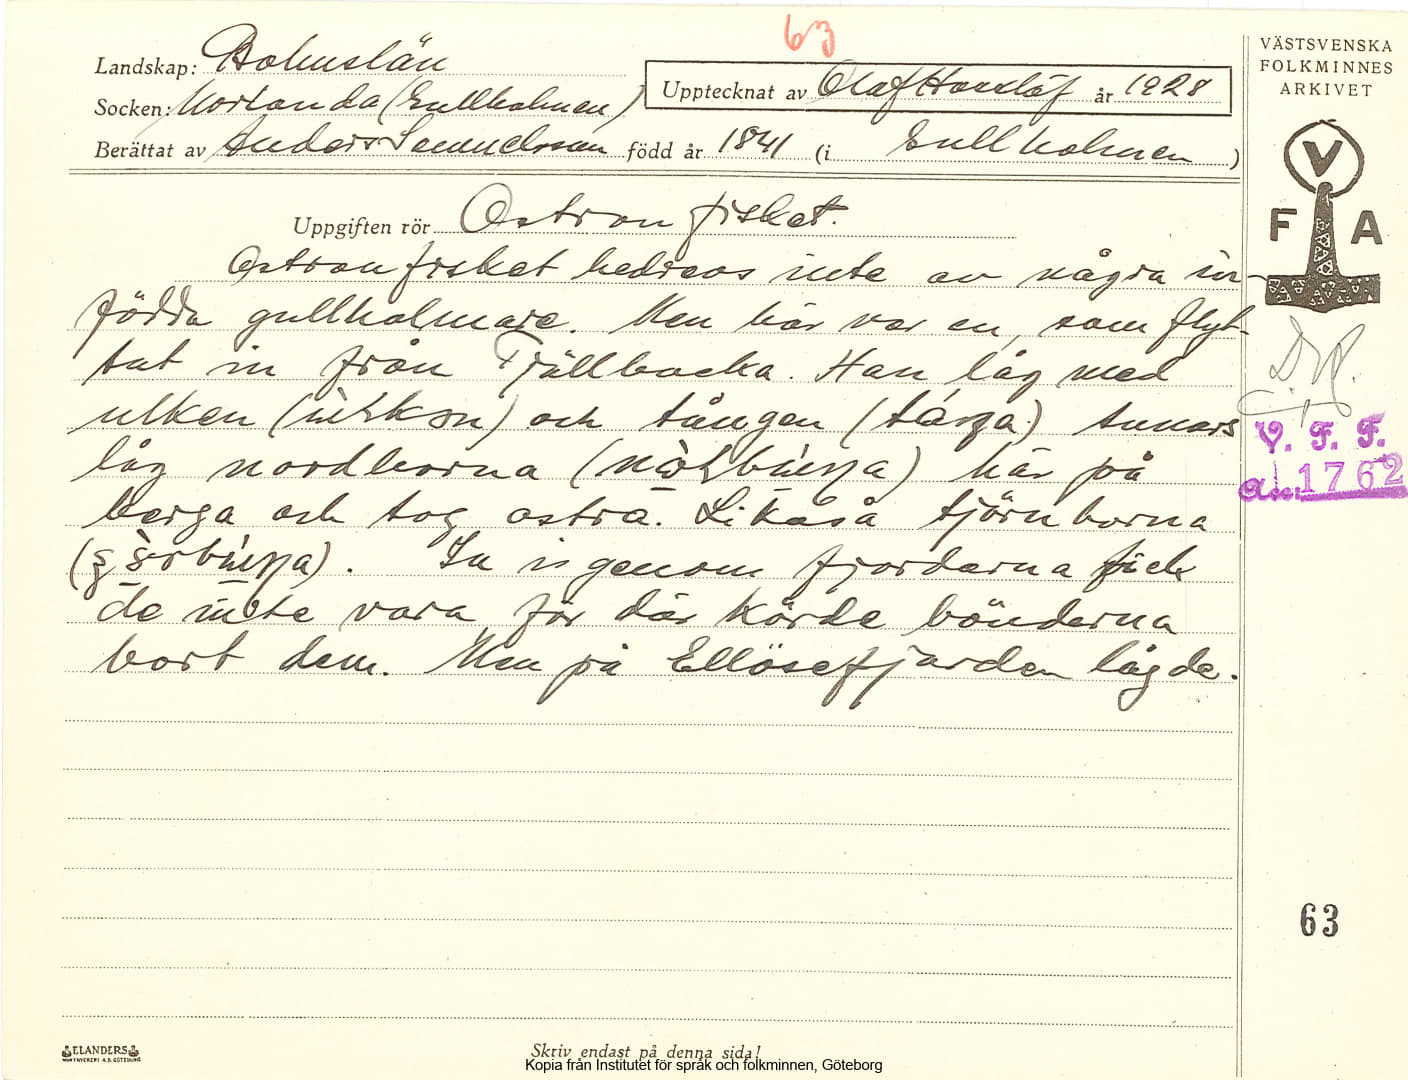 63
Landskap: Bohuslän
Socken: Morlanda (Gullholmen)
Upptecknat av Olof Hasslöf år 1928
Berättat av Anders Samuelsson född år 1841 (i Gullholmen)
Uppgiften rör Ostronfisket.
Ostronfisket bedrevs inte av några in-
födda gullholmare. Men här var en, som flyt-
tat in från Fjällbacka. Han låg med
ulken och tången annars
låg nordborna här på
berga och tog ostra. Likaså tjörnborna
In igenom fjordarna fick
de inte vara för där körde bönderna
bort dem. Men på Ellösefjorden låg de.
VÄSTSVENSKA
FOLKMINNES
ARKIVET
V
F A
V. F. F.
1762
63
ELANDERS
Skriv endast på denna sida!
Kopia från Institutet för språk och folkminnen, Göteborg